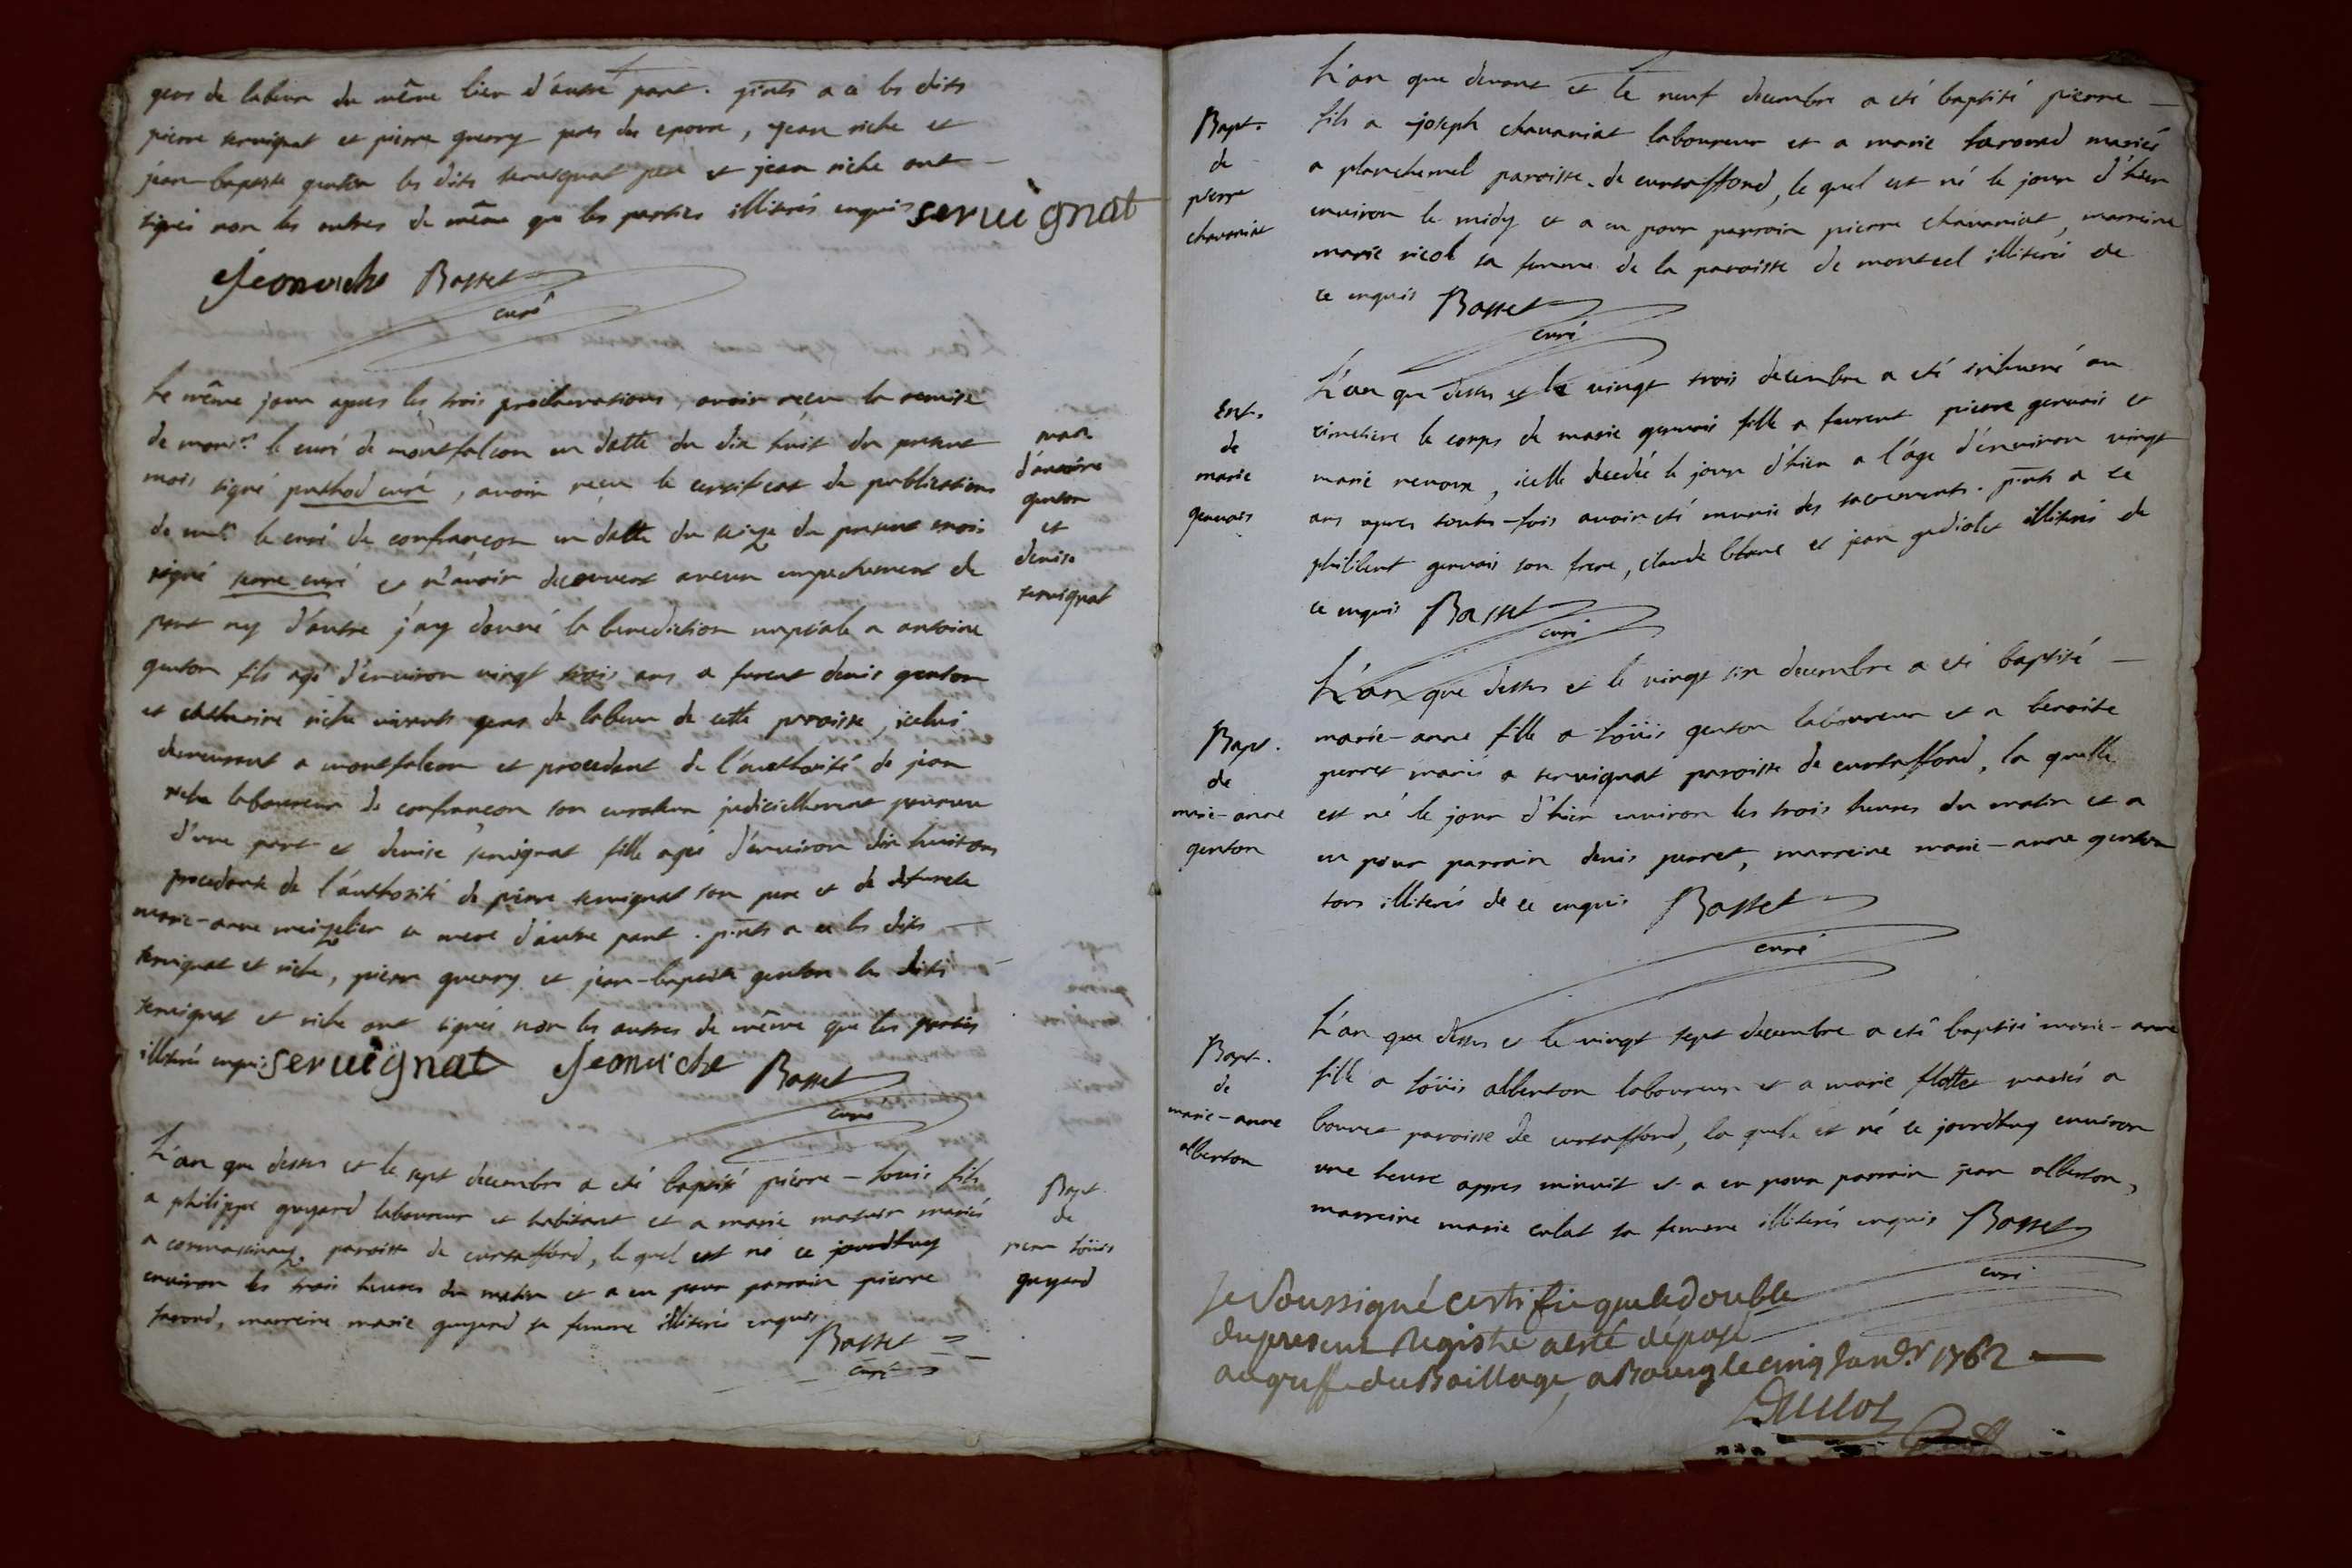 gens de labeur du même lieu d'autre part. pints a ce les dits
pierre servignat et pierre guerry peres des epoux, jean riche et
jean-baptiste genton les dits servignat pere et jean riche ont
signés non les autres de même que les parties illiterés enquis servignat
Jeanriche Basset
curé
Le même jour apres les trois proclamations, avoir reçeu la remise
de monsr. le curé de montfalcon en datte du dix huit du present
mois signé puthod curé, avoir reçeu le certificat de publications
de mr. le curé de confrançon en datte du seize du present mois
signé curé et n'avoir decouvert aucun empechement de
part ny d'autre j'ay donné la benediction nuptiale a antoine
genton fils agé d'environ vingt trois ans a furent denis genton
et riche vivants gens de labeur de cette paroisse, icelui
demeurant a montfalcon et procedant de l'authorité de jean
riche laboureur de confrançon son curateur judiciellement pourveu
d'une part et denise servignat fille agée d'environ dix huit ans
procedante de l'authorité de pierre servignat son pere et de defuncte
marie-anne sa mere d'autre part. pints a ce les dits
servignat et riche, pierre guerry et jean-baptiste genton les dits
servignat et riche ont signés non les autres de même que les parties
illiterés enquis servignat Jeanriche Basset
curé
mar.
d'antoine
genton
et
denise
servignat
L'an que dessus et le sept decembre a eté baptisé pierre-loüis fils
a philippe guyard laboureur et habitant et a marie mariés
a paroisse de curtaffond, le quel est né ce jourdhuy
environ les trois heures du matin et a eu pour parrain pierre
marreine marie guyard sa femme illiterés enquis
Basset
curé
Bapt.
de
pierre loüis
guyard
Bapt.
de
pierre
chavaniat
L'an que devant et le neuf decembre a eté baptisé pierre
fils a joseph chavaniat laboureur et a marie mariés
a planchemel paroisse de curtaffond, le quel est né le jour d'hier
environ le midy et a eu pour parrain pierre chavaniat, marreine
marie nicol sa femme de la paroisse de montcel illiterés de
ce enquis Basset
curé
Ent.
de
marie
gervais
L'an que dessus et le vingt trois decembre a eté inhumé au
cimetiere le corps de marie gervais fille a feurent pierre gervais et
marie renoux, icelle decedée le jour d'hier a l'âge d'environ vingt
ans apres toutes-fois avoir eté munie des sacrements. pints a ce
philibert gervais son frere, claude blanc et jean illiterés de
ce enquis Basset
curé
Bapt.
de
marie-anne
genton
L'an que dessus et le vingt six decembre a eté baptisé
marie-anne fille a loüis genton laboureur et a benoite
perret mariés a servignat paroisse de curtaffond, la quelle
est né le jour d'hier environ les trois heures du matin et a
eu pour parrain denis perret, marreine marie-anne genton
tous illiterés de ce enquis Basset
curé
Bapt.
de
marie-anne
alberton
L'an que dessus et le vingt sept decembre a eté baptisé marie-anne
fille a loüis alberton laboureur et a marie flottet mariés a
bouvet paroisse de curtaffond, la quele est né ce jourdhuy environ
une heure apres minuit et a eu pour parrain jean alberton,
marreine marie sa femme illiterés enquis Basset
curé
Je soussigné certifie que le double
du present Registre a esté déposé
au greffe du Baillage, a Bourg le cinq Janvr 1762